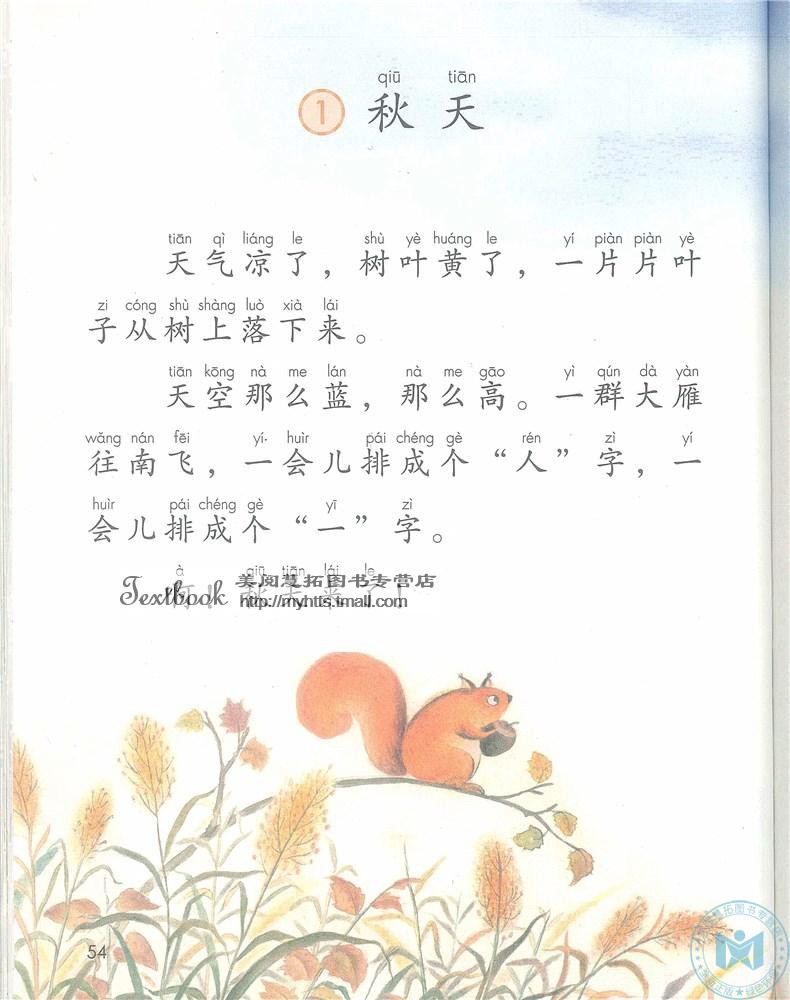 qiū tiān
1 秋天
tiān qì liáng le shù yè huáng le yí piàn piàn yè
天气凉了，树叶黄了，一片片叶
zi cóng shù shàng luò xià lái
子从树上落下来。
tiān kōng nà me lán nà me gāo yì qún dà yàn
天空那么蓝，那么高。一群大雁
wǎng nán fēi yí huìr pái chéng gè rén zì yí
往南飞，一会儿排成个“人”字，一
huìr pái chéng gè yī zì
会儿排成个“一”字。
à qiū tiān lái le
啊！秋天来了！
Textbook
美阅蔓拓图书专营店
http://myhtts.tmall.com
54